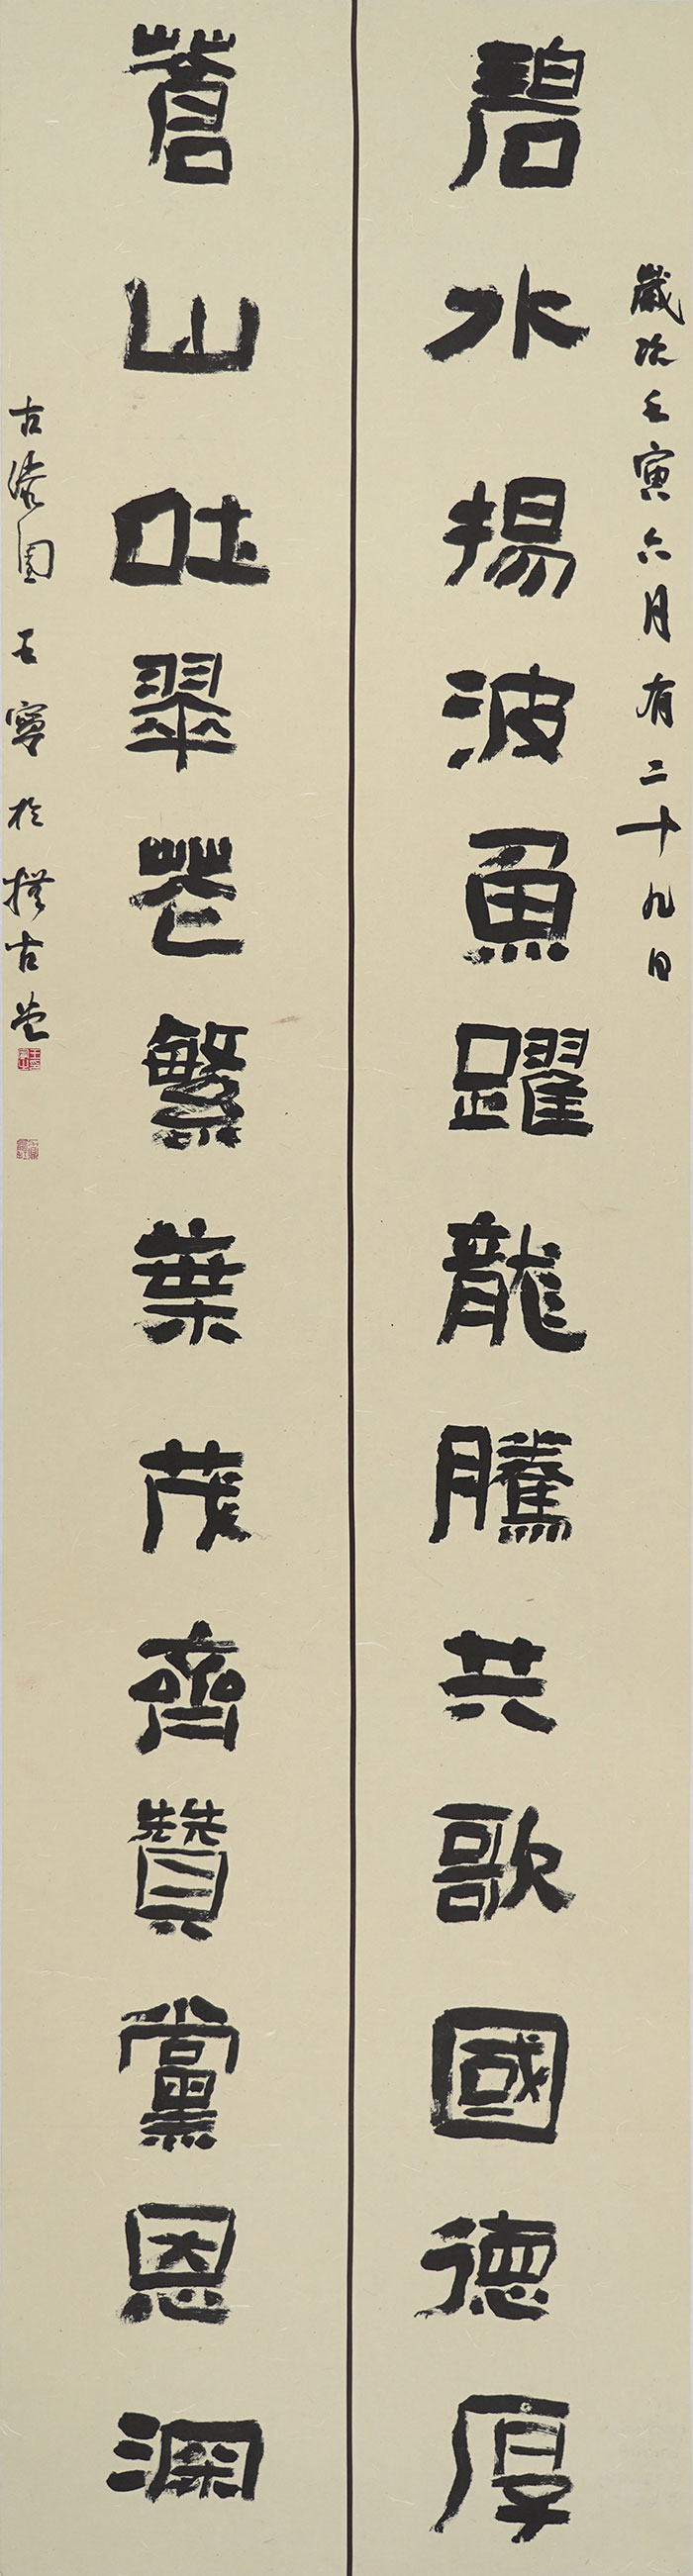 歲次壬寅六月有二十九日
碧水揚波魚躍龍騰共歌國德厚
蒼山吐翠花繁葉茂齊贊黨恩深
古國王寧於樸古堂